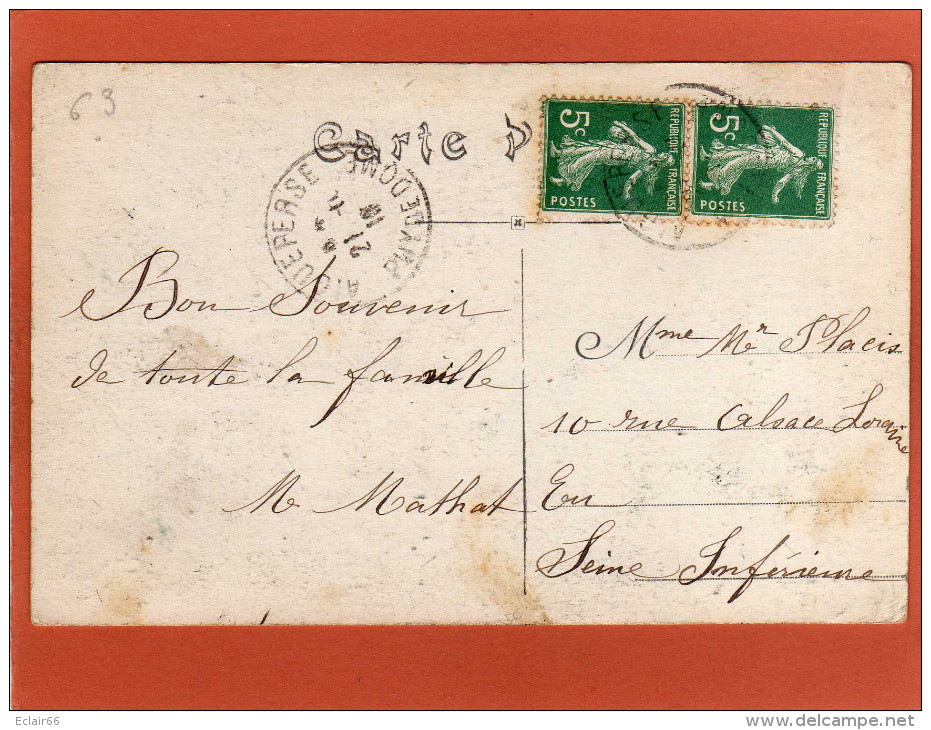 63
Carte P
5c
REPUBLIQUE FRANÇAISE
POSTES
5c
REPUBLIQUE FRANÇAISE
POSTES
AIGUEPERSE
PUY DE DOME
21
Bon Souvenir
de toute la famille
M Mathat
Mme Mr Placis
10 rue Alsace Loraine
Eu
Seine Inférieure
Eclair66
www.delcampe.net